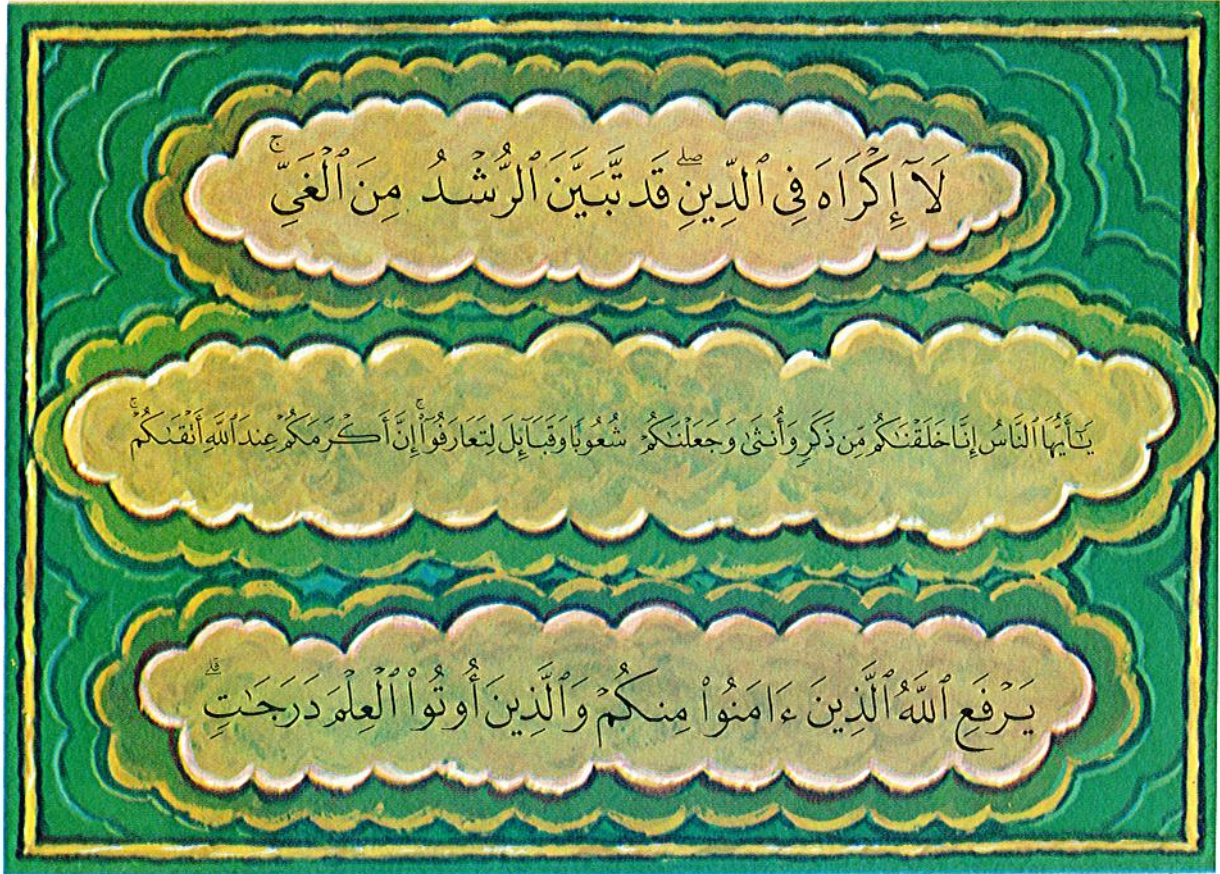 لَآ إِكْرَاهَ فِى ٱلدِّينِ ۖ قَد تَّبَيَّنَ ٱلرُّشْدُ مِنَ ٱلْغَىِّ ۚ
يَـٰٓأَيُّهَا ٱلنَّاسُ إِنَّا خَلَقْنَـٰكُم مِّن ذَكَرٍ وَأُنثَىٰ وَجَعَلْنَـٰكُمْ شُعُوبًا وَقَبَآئِلَ لِتَعَارَفُوٓا۟ ۚ إِنَّ أَكْرَمَكُمْ عِندَ ٱللَّهِ أَتْقَىٰكُمْ ۚ
يَرْفَعِ ٱللَّهُ ٱلَّذِينَ ءَامَنُوا۟ مِنكُمْ وَٱلَّذِينَ أُوتُوا۟ ٱلْعِلْمَ دَرَجَـٰتٍ ۚ